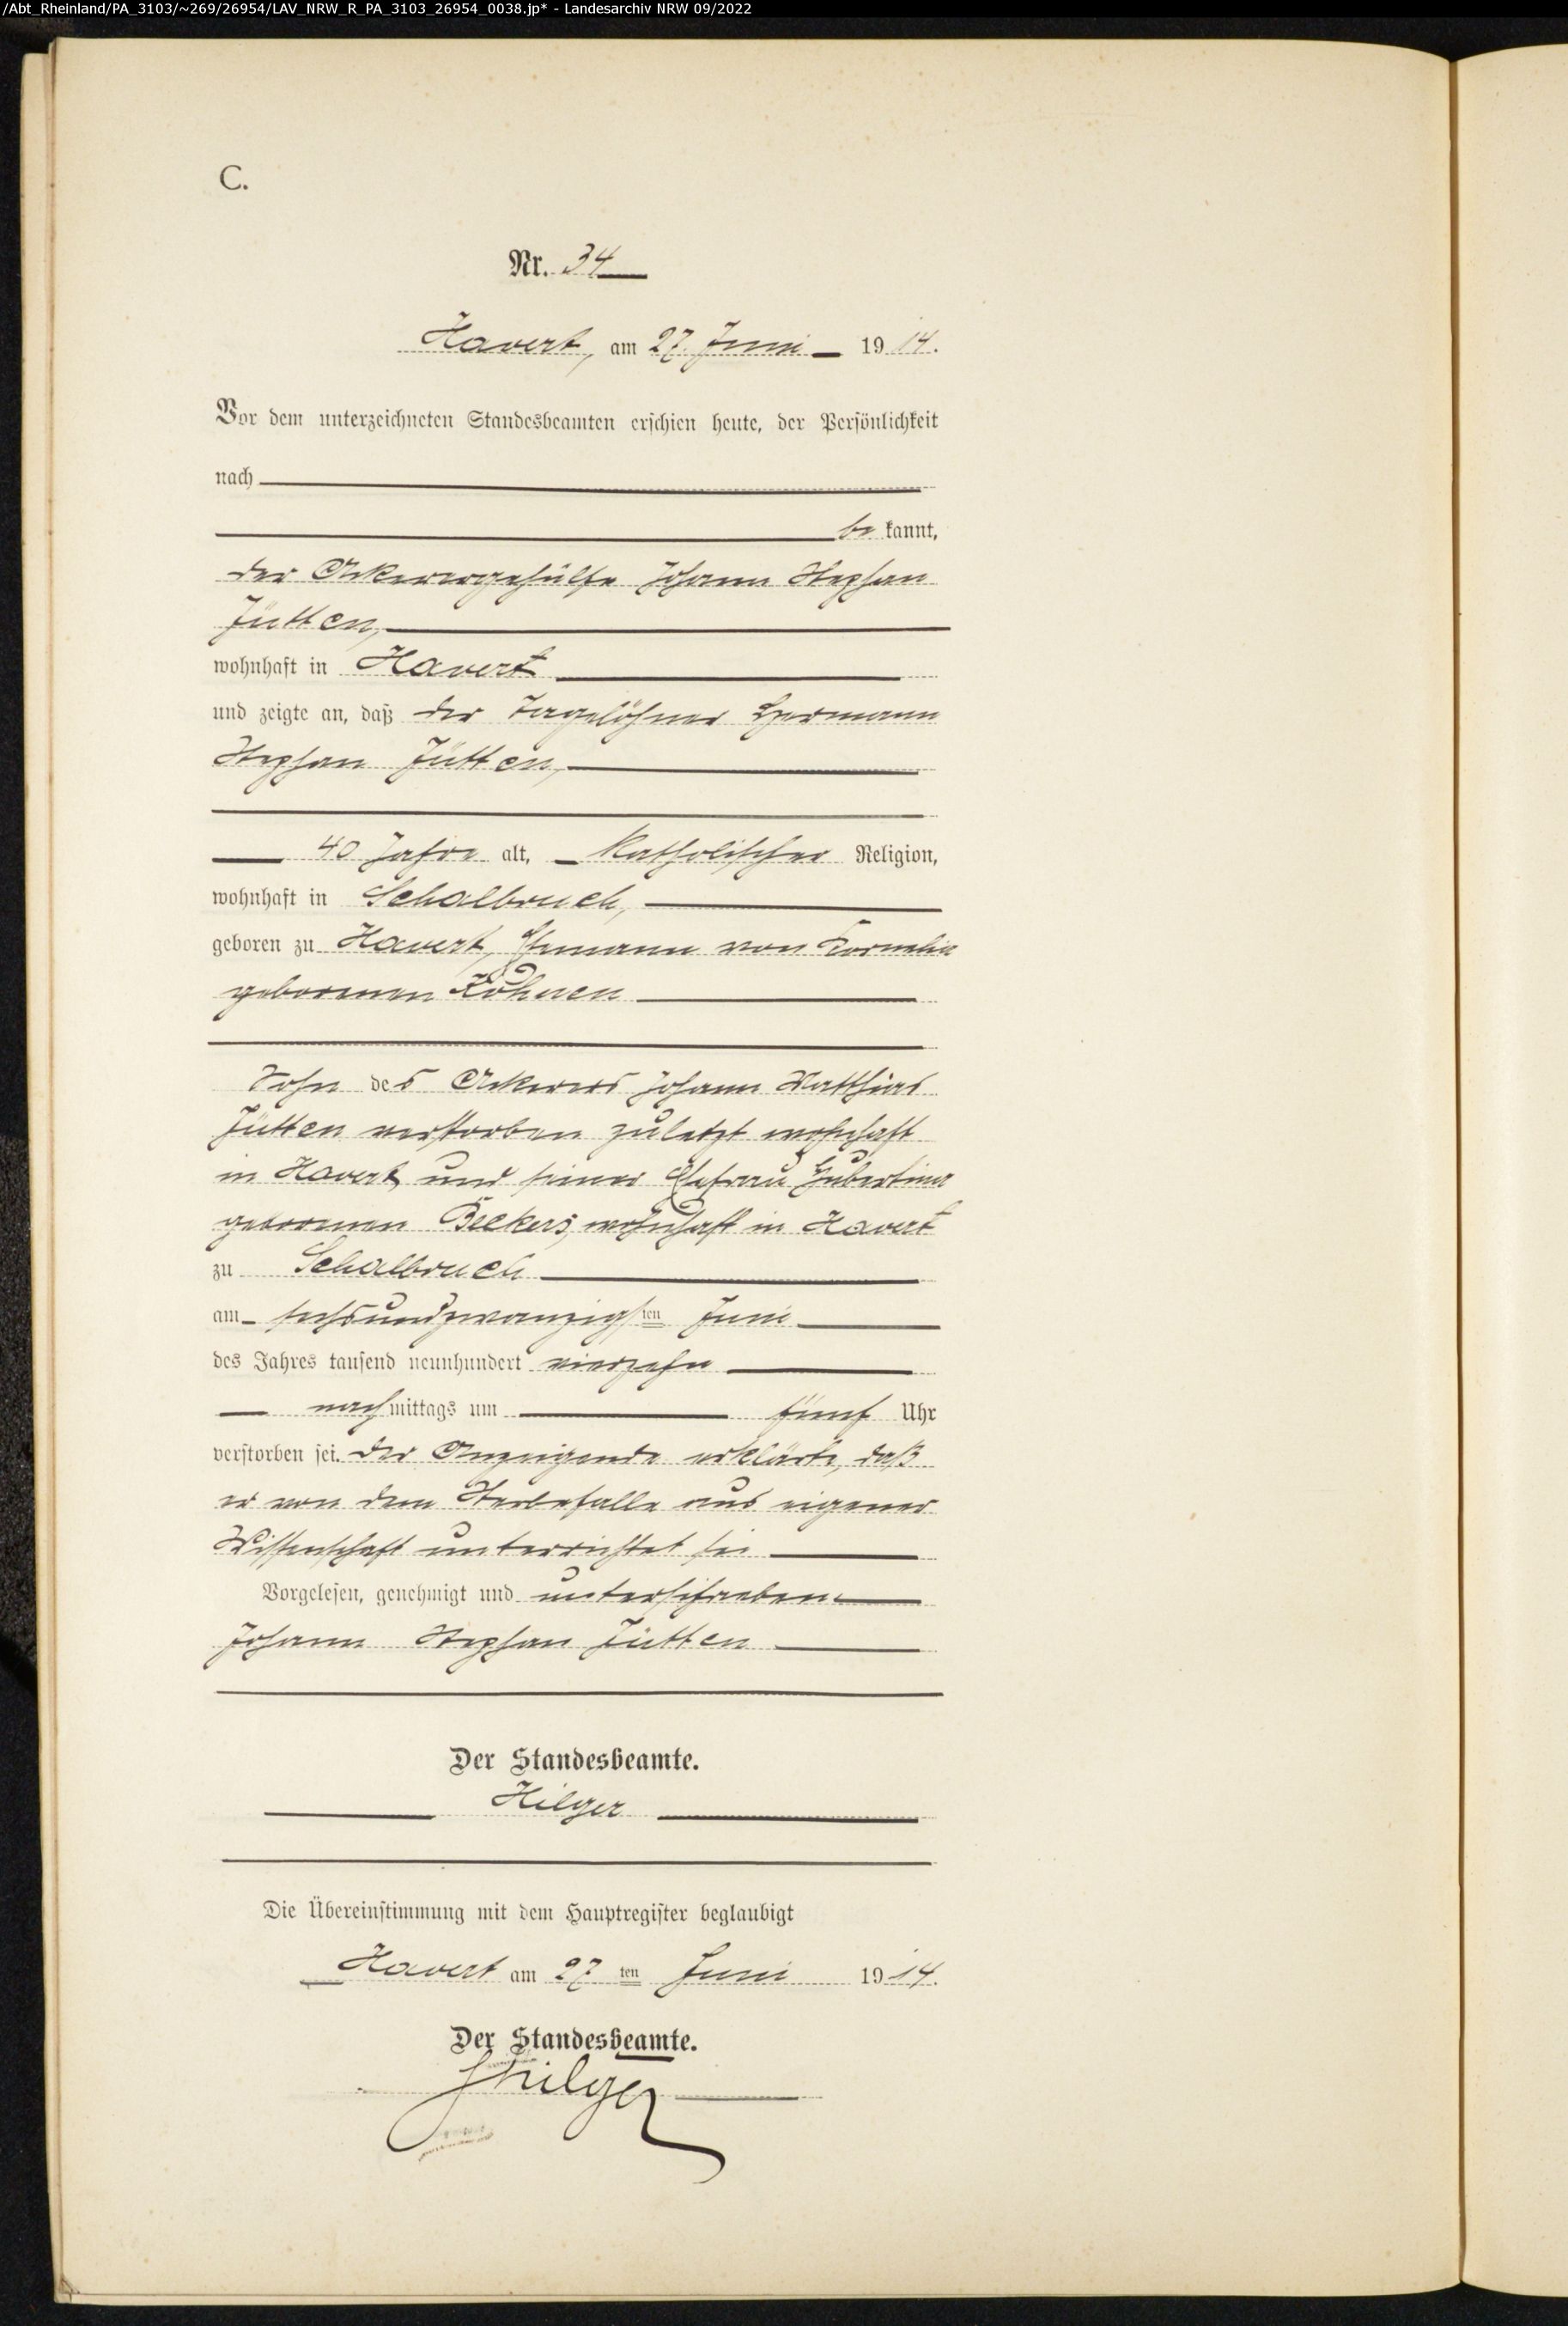 /Abt_Rheinland/PA_3103/~269/26954/LAV_NRW_R_PA_3103_26954_0038.jp* - Landesarchiv NRW 09/2022
C.
Nr. 34
Havert, am 27. Juni 1914.
Vor dem unterzeichneten Standesbeamten erschien heute, der Persönlichkeit
nach
be kannt,
der Ackerergehülfe Johann Stephan
Jütten,
wohnhaft in Havert
und zeigte an, daß der Tagelöhner Hermann
Stephan Jütten,
40 Jahre alt, katholischer Religion,
wohnhaft in Schalbruch,
geboren zu Havert, Ehemann von Kornelia
geborenen Köhnen
Sohn des Ackerers Johann Matthias
Jütten verstorben zuletzt wohnhaft
in Havert und seiner Ehefrau Hubertina
geborenen Beckers, wohnhaft in Havert
zu Schalbruch
am sechsundzwanzigsten Juni
des Jahres tausend neunhundert vierzehn
nachmittags um fünf Uhr
verstorben sei. Der Anzeigende erklärte, daß
er von dem Sterbefalle aus eigener
Wissenschaft unterrichtet sei
Vorgelesen, genehmigt und unterschrieben
Johann Stephan Jütten
Der Standesbeamte.
Hilger
Die Übereinstimmung mit dem Hauptregister beglaubigt
Havert am 27 ten Juni 1914.
Der Standesbeamte.
Hilger